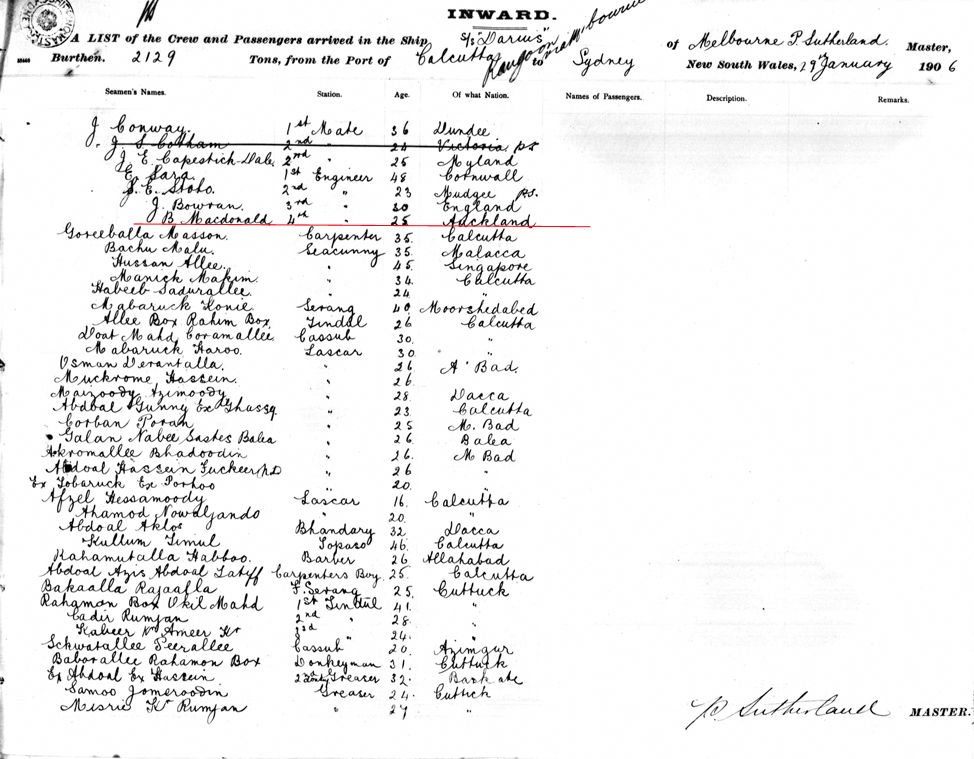 INWARD.
A LIST of the Crew and Passengers arrived in the Ship s/s "Darius" of Melbourne P. Sutherland. Master,
Burthen. 2129 Tons, from the Port of Calcutta Rangoon via Melbourne to Sydney New South Wales, 29 January 1906
Seamen's Names. Station. Age. Of what Nation. Names of Passengers. Description. Remarks.
J Conway. 1st Mate 36 Dundee
J S Cotham 2nd " 24 Victoria
J. E. Capestick-Dale 2nd " 25 Myland
E. Sara 1st Engineer 48 Cornwall
S. E. Stoto. 2nd " 23 Mudgee
J. Bowran. 3rd " 30 England
J B. Macdonald 4rd " 25 Auckland
Goreeballa Masson. Carpenter 35. Calcutta
Bachu Malu. Seacunny 35. Malacca
Hussan Allee. " 45. Singapore
Manick Makim. " 34. Calcutta
Habeeb Sadurallee. " 24 "
Mabaruck Konie Serang 40 Moorshedabed
Allee Box Rahim Box. Tindal 26 Calcutta
Doat Mahd Coramallee. Cassub 30. "
Mabaruck Haroo. Lascar 30. "
Osman Derantalla. " 26 A' Bad.
Muckrome Hassein. " 26. "
Maizoody Azimoody " 28. Dacca
Abdbal Gunny Ex Ghussq " 23 Calcutta
Corban Poran " 25 M. Bad
Galan Nabee Sastes Balea " 26 Balea
Akromallee Bhadoodin " 26. M Bad
Abdoal Hassein " 26 "
Ex Tobaruck Ex Porhoo " 20. "
Afzel Hessamoody Lascar 16. Calcutta
Ahamod Nowaljando " 20. "
Abdoal Aklos Bhandary 32 Dacca
Kullum Timul Topass 46. Calcutta
Rahamutalla Habboo. Barber 26 Allahabad
Abdoal Azis Abdoal Latiff Carpenters Boy 25. Calcutta
Bakaalla Rajaafla F. Serang 25. Cuttuck
Rahaman Box Okil Mahd 1st Tindul 41. "
Cadir Rumjan 2nd " 28. "
Kabeer Kr Ameer Kr 3rd " 24. "
Schwatallee Peerallee Cassub 20. Azimgur
Baborallee Rahamon Box Donkeyman 31. Cuttuck
Ex Abdoal Ex Hassein Greaser 32.
Samoo Jomeroodin Greaser 24. Cuttick
Misrie Kr Rumjan " 27 "
P. Sutherland MASTER.